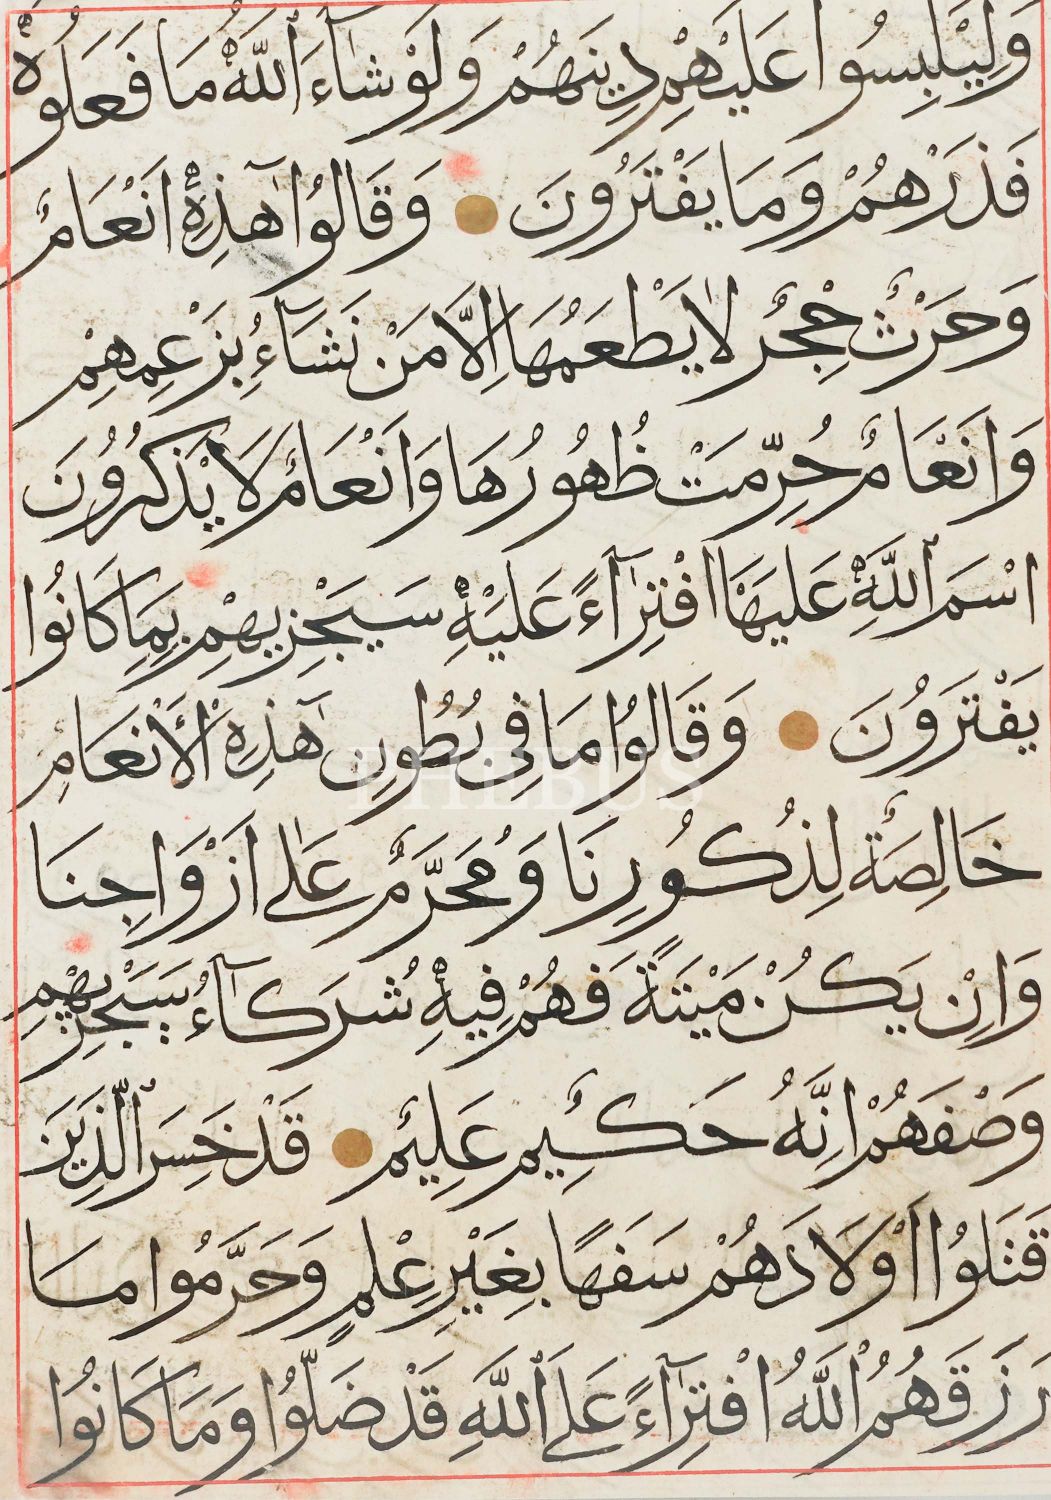 وَلِيَلْبِسُوا عَلَيْهِمْ دِينَهُمْ وَلَوْ شَآءَ اللّٰهُ مَا فَعَلُوهُ
فَذَرْهُمْ وَمَا يَفْتَرُونَ وَقَالُوا هٰذِهِ اَنْعَامٌ
وَحَرْثٌ حِجْرٌ لَا يَطْعَمُهَا اِلَّا مَنْ نَشَآءُ بِزَعْمِهِمْ
وَاَنْعَامٌ حُرِّمَتْ ظُهُورُهَا وَاَنْعَامٌ لَا يَذْكُرُونَ
اسْمَ اللّٰهِ عَلَيْهَا افْتِرَآءً عَلَيْهِ سَيَجْزِيهِمْ بِمَا كَانُوا
يَفْتَرُونَ وَقَالُوا مَا فِى بُطُونِ هٰذِهِ الْاَنْعَامِ
خَالِصَةٌ لِذُكُورِنَا وَمُحَرَّمٌ عَلٰى اَزْوَاجِنَا
وَاِنْ يَكُنْ مَيْتَةً فَهُمْ فِيهِ شُرَكَآءُ سَيَجْزِيهِمْ
وَصْفَهُمْ اِنَّهُ حَكِيمٌ عَلِيمٌ قَدْ خَسِرَ الَّذِينَ
قَتَلُوا اَوْلَادَهُمْ سَفَهًا بِغَيْرِ عِلْمٍ وَحَرَّمُوا مَا
رَزَقَهُمُ اللّٰهُ افْتِرَآءً عَلَى اللّٰهِ قَدْ ضَلُّوا وَمَا كَانُوا
PHEBUS